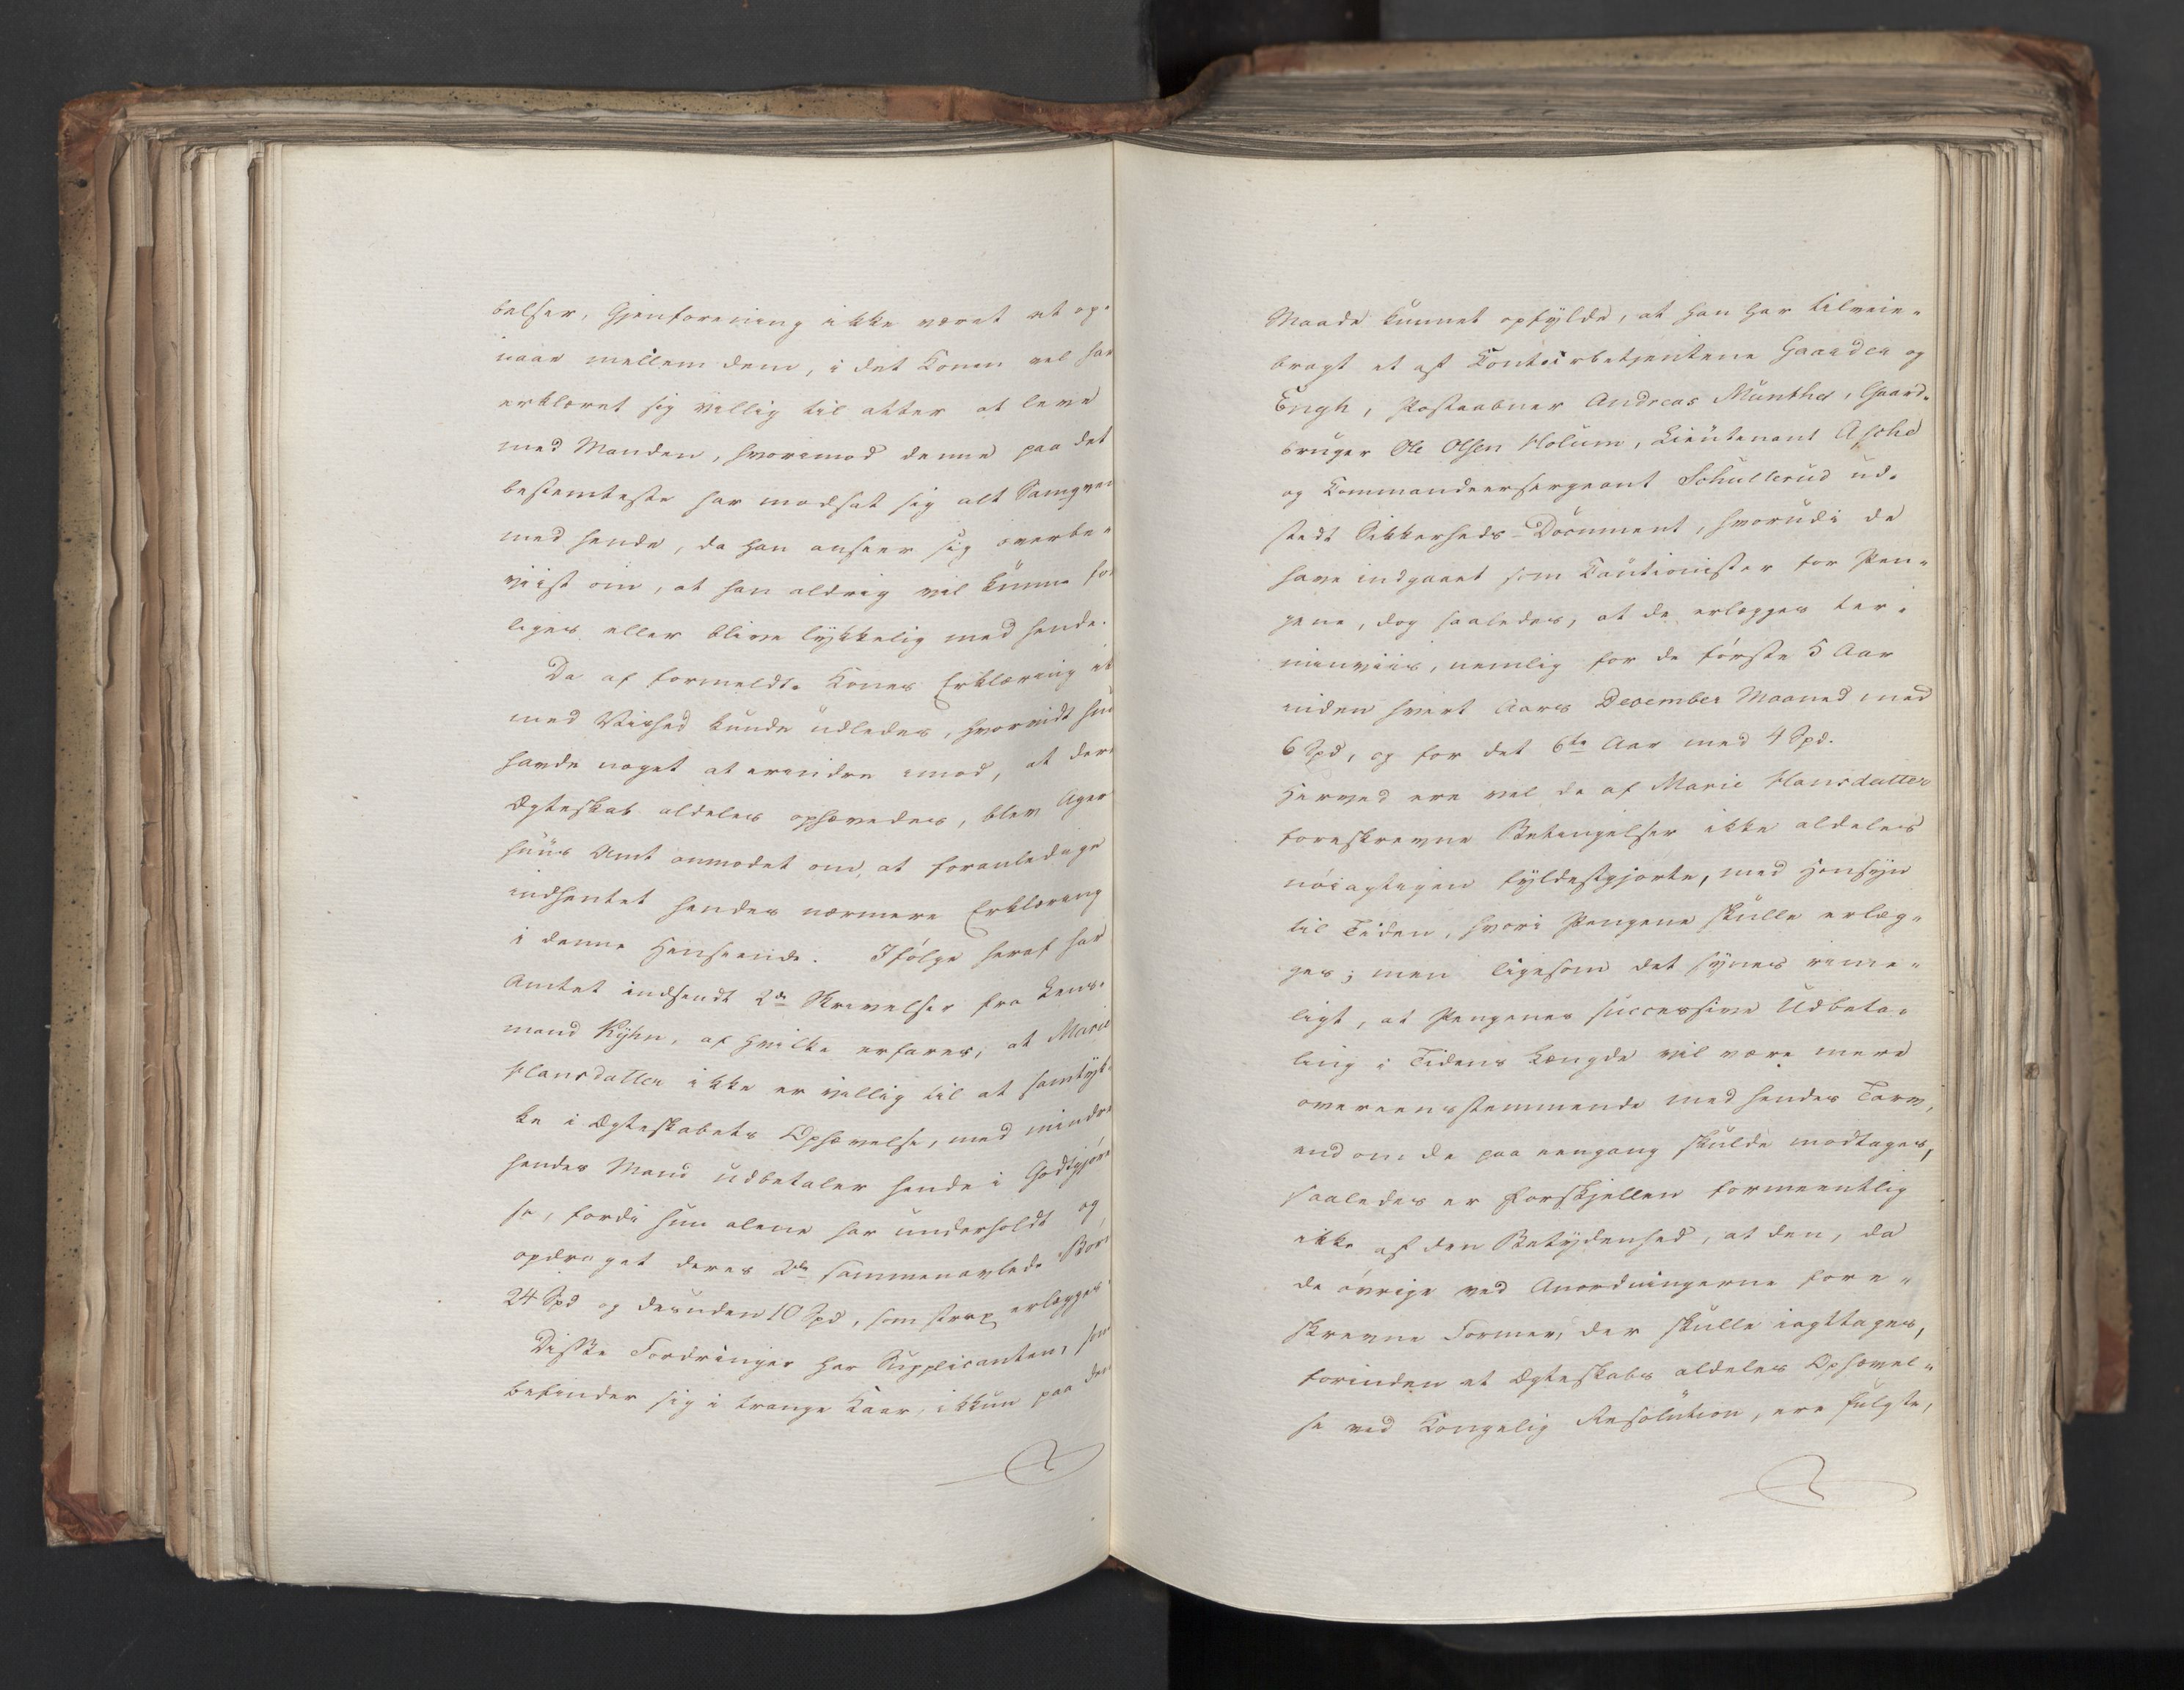 belser, Gjenforening ikke været at op-
naae mellem dem, i det Konen vel har
erklæret sig villig til atter at leve
med Manden, hvorimod denne paa det
bestemteste har modsat sig alt Samqvem
med hende, da han anseer sig overbe-
viist om, at han aldrig vil kunne for
liges eller blive lykkelig med hende.
Da af formeldte Kones Erklæring ei
med Vished kunde udledes, hvorvidt hun
havde noget at erindre imod, at deres
Ægteskab aldeles ophævedes, blev Ager
huus Amt anmodet om, at foranledige
indhentet hendes nærmere Erklæring
i denne Henseende. Ifølge heraf har
Amtet indsendt 2de Skrivelser fra Lens-
mand Kyhn, af hvilke erfares, at Marie
Hansdatter ikke er villig til at samtyk-
ke i Ægteskabets Ophævelse, med mindre
hendes Mand udbetaler hende i Godtgjørel
se, fordi hun alene har underholdt og
opdraget deres 2de sammenavlede Børn
24 Spd og desuden 10 Spd, som strax erlægges
Disse Fordringer har Supplicanten, som
befinder sig i trange Kaar, ikkun paa den
Maade kunnet opfylde, at han har tilveie-
bragt et af Contoirbetjentene Gaarder og
Engh, Postaabner Andreas Munthe, Gaard-
bruger Ole Olsen Holum, Lieutenant Asche
og Commandeersergeant Schullerud ud-
stedt Sikkerheds-Document, hvorudi de
have indgaaet som Cautionister for Pen-
gene, dog saaledes, at de erlægges ter-
minviis, nemlig for de første 5 Aar
inden hvert Aars December Maaned med
6 Spd, og for det 6te Aar med 4 Spd.
Herved ere vel de af Marie Hansdatter
foreskrevne Betingelser ikke aldeles
nöiagtigen fyldestgjorte, med Hensyn
til Tiden, hvori Pengene skulle erlæg-
ges; men ligesom det synes rime-
ligt, at Pengenes successive Udbeta-
ling i Tidens Længde vil være mere
overeensstemmende med hendes Tarv,
end om de paa eengang skulde modtages,
saaledes er Forskjellen formeentlig
ikke af den Betydenhed, at den, da
de øvrige ved Anordningerne fore-
skrevne Former, der skulle iagttages,
forinden et Ægteskabs aldeles Ophævel-
se ved Kongelig Resolution, ere fulgte,